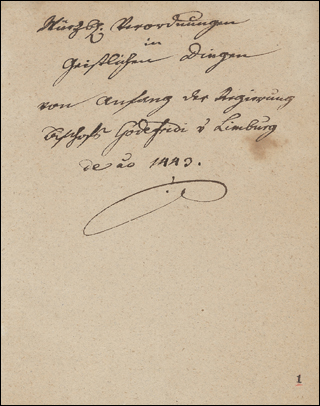 Würzb. Verordnungen
in
Geistlichen Dingen
von Anfang der Regierung
Bischofs Godefridi v Limburg
de ao 1443.
1